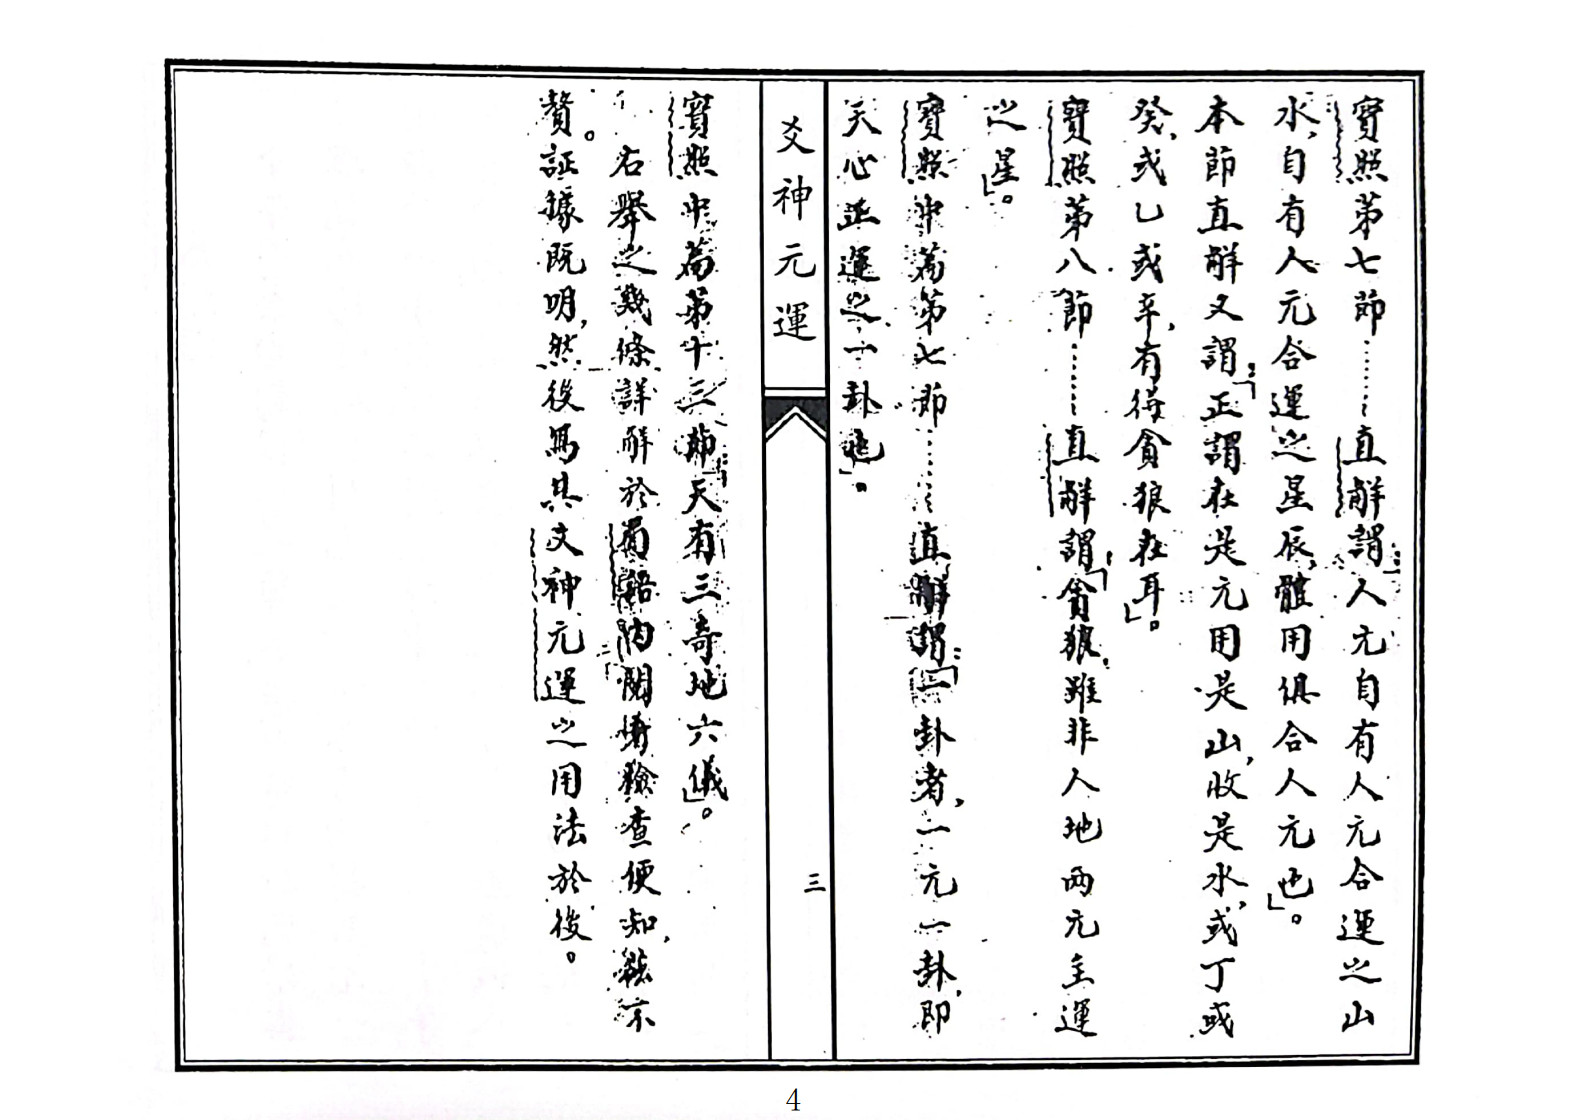 寶照第七節……直解謂「人元自有人元合運之山
水，自有人元合運之星辰，體用俱合人元也」。
本節直解又謂「正謂在是元用是山，收是水，或丁或
癸，或乙或辛，有得貪狼在耳」。
寶照第八節……直解謂「貪狼，雖非人地两元主運
之星」。
寶照中篇第七節……直解謂「一卦者，一元一卦，即
天心正運之一卦也」。
爻神元運
三
寶照中篇第十三節「天有三奇地六儀」。
右舉之幾條詳解於
內關備驗查便知，茲不
贅。証據既明，然後寫其爻神元運之用法於後。
4